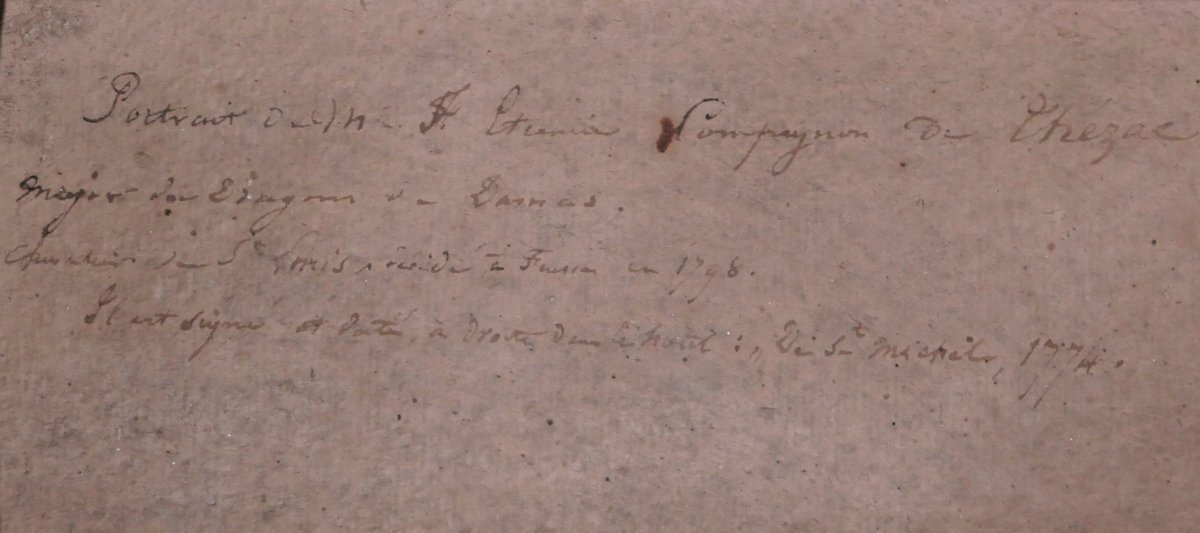 Portrait de Mr Et Etienne Compagnon De Thezac
Major de Dragons de Damas.
Chevalier de St Louis, décédé à en 1798.
Il est signé et daté, à droite dans le haut : „ De St Michel, 1774.